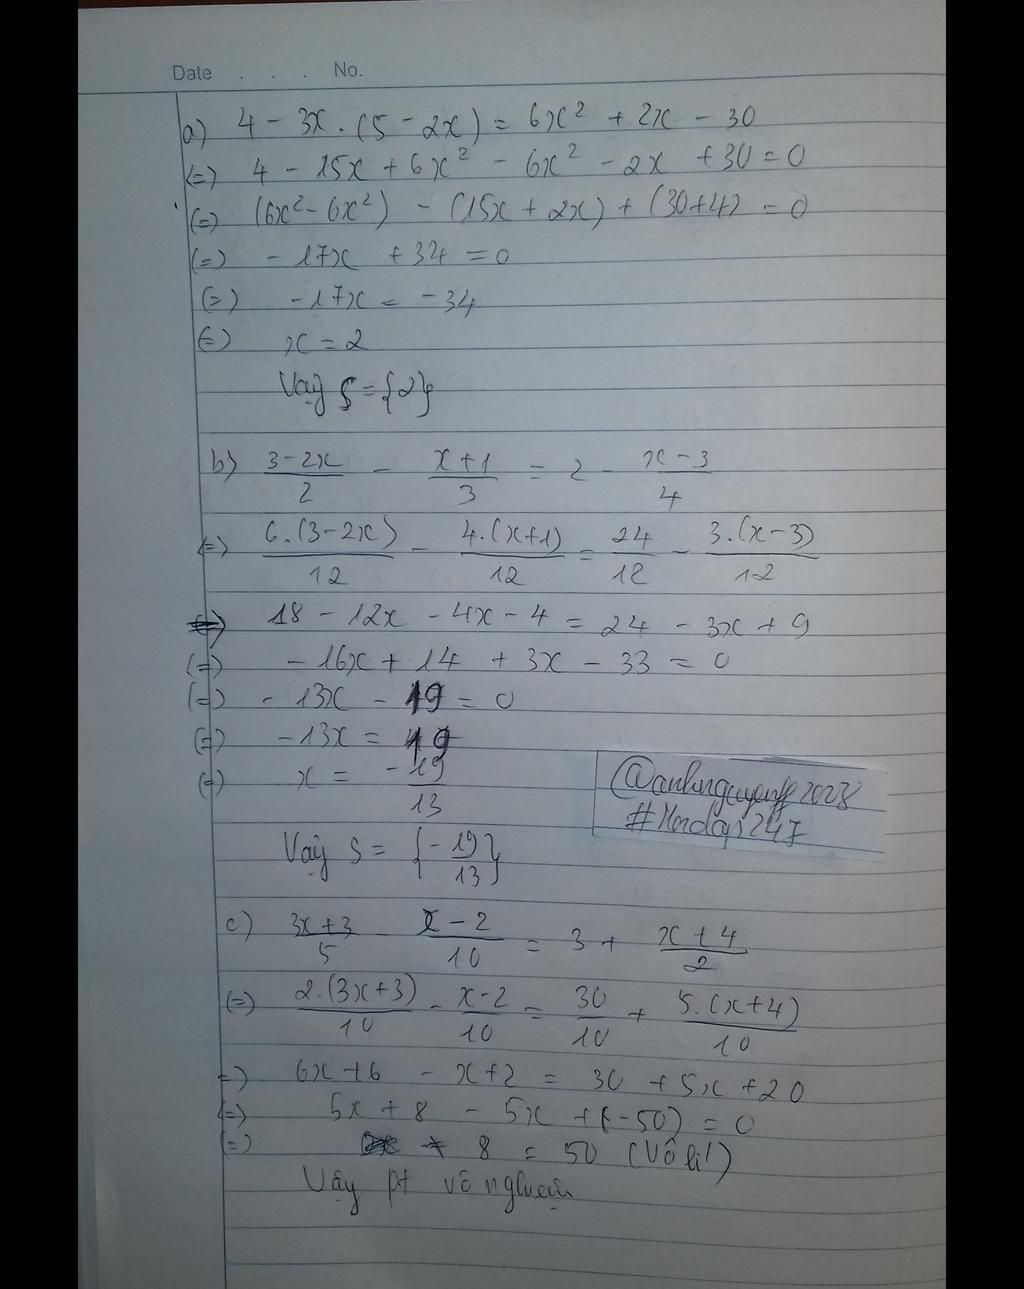 Date . . . No.
a) 4 - 3x . (5 - 2x) = 6x² + 2x - 30
(=) 4 - 15x + 6x² - 6x² - 2x + 30 = 0
(=) (6x² - 6x²) - (15x + 2x) + (30+4) = 0
(=) - 17x + 34 = 0
(=) -17x = -34
(=) x = 2
Vậy S = {2}
b) (3-2x)/2 - (x+1)/3 = 2 - (x-3)/4
(=) 6.(3-2x)/12 - 4.(x+1)/12 = 24/12 - 3.(x-3)/12
(=) 18 - 12x - 4x - 4 = 24 - 3x + 9
(=) - 16x + 14 + 3x - 33 = 0
(=) - 13x - 19 = 0
(=) -13x = 19
(=) x = -19/13
Vậy S = {-19/13}
@anhnguyen 2028
#Hoidap247
c) (3x+3)/5 - (x-2)/10 = 3 + (x+4)/2
(=) 2.(3x+3)/10 - (x-2)/10 = 30/10 + 5.(x+4)/10
=) 6x+6 - x+2 = 30 + 5x + 20
(=) 5x + 8 - 5x + (-50) = 0
(=) 8 = 50 (Vô lí!)
Vậy pt vô nghiệm